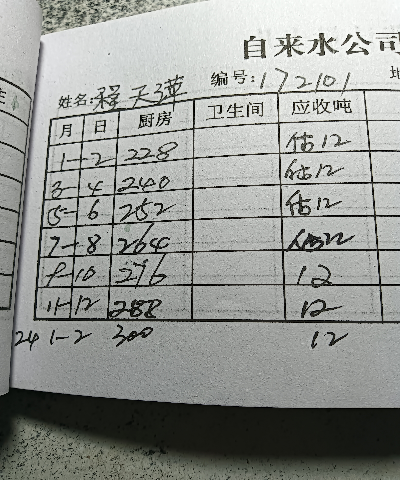 自来水公司
姓名: 天 编号: 172101
月 日 厨房 卫生间 应收吨
1-2 228 估12
3-4 240 估12
5-6 252 估12
7-8 264 估12
9-10 276 12
11-12 288 12
24 1-2 300 12